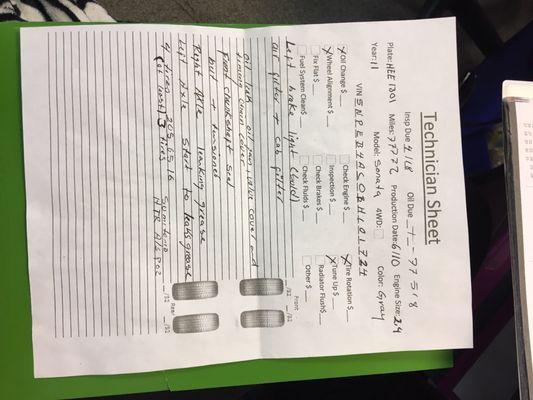 Technician Sheet
Insp Due 2/18 Oil Due _/_-77 518
Plate: HEE 7301 Miles: 77772 Production Date: 6/10 Engine Size: 2.4
Year: 11 Model: Sonata 4WD: Color: Gray
VIN 5NPEB4AC0BH101724
X Oil Change $ Check Engine $ X Tire Rotation $
X Wheel Alignment $ Inspection $ X Tune Up $
Fix Flat $ Check Brakes $ Radiator Flush $
Fuel System Clean $ Check Fluids $ Other $
Left brake light (build)
air filter + cab filter
oil leak oil pan, valve cover and
timing chain cover
Front crankshaft seal
belt + tensioner
Right Axle leaking grease
Left Axle start to leak grease
4 tires 205.65.16 Sumitomo
(at least) 3 tires HTR A/S P02
Front
__/32 __/32
__/32 __/32
Rear